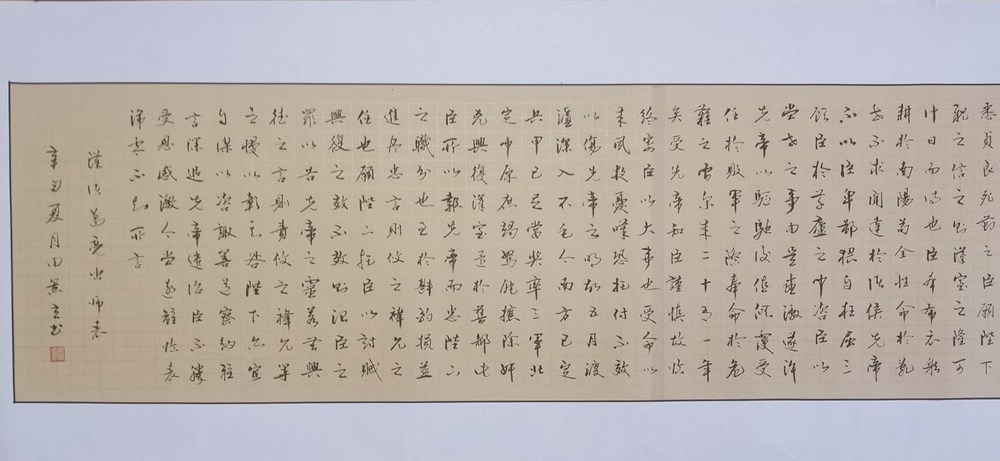 悉貞良死節之臣願陛下
親之信之則漢室之隆可
計日而待也臣本布衣躬
耕於南陽苟全性命於亂
世不求聞達於諸侯先帝
不以臣卑鄙猥自枉屈三
顧臣於草廬之中咨臣以
當世之事由是感激遂許
先帝以驅馳後值傾覆受
任於敗軍之際奉命於危
難之間爾來二十有一年
矣受先帝知臣謹慎故臨
終寄臣以大事也受命以
來夙夜憂嘆恐托付不效
以傷先帝之明故五月渡
瀘深入不毛今南方已定
兵甲已足當獎率三軍北
定中原庶竭駑鈍攘除奸
兇興復漢室還於舊都此
臣所以報先帝而忠陛下
之職分也至於斟酌損益
進盡忠言則攸之禕允之
任也願陛下托臣以討賊
興復之效不效則治臣之
罪以告先帝之靈若無興
德之言則責攸之禕允等
之慢以彰其咎陛下亦宜
自謀以咨諏善道察納雅
言深追先帝遺詔臣不勝
受恩感激今當遠離臨表
涕零不知所言
漢諸葛亮出師表
辛丑夏月田景立書